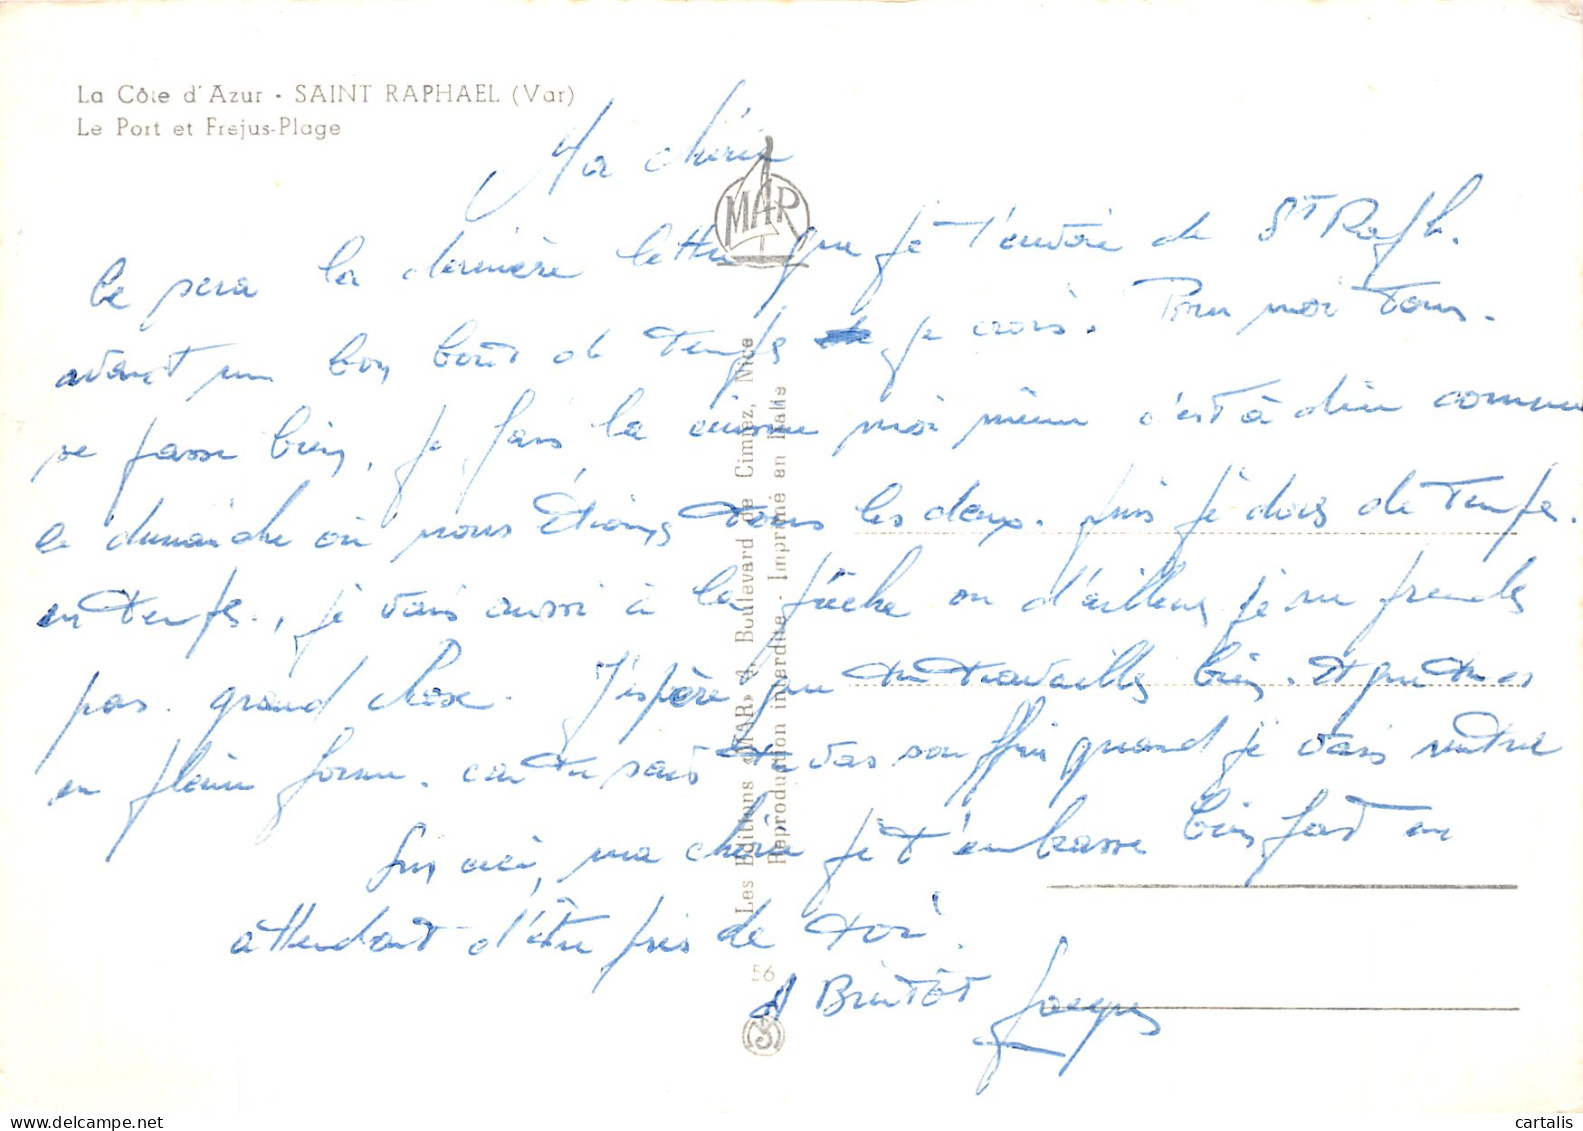 La Côte d'Azur - SAINT RAPHAEL (Var)
Le Port et Frejus-Plage
Ma chérie
Ce sera la dernière lettre que je t'envoie de St Raph.
avant un bon bout de temps je crois. Pour moi tous.
se passe bien, je fais la cuisine moi même c'est à dire comme
le dimanche où nous étions tous les deux. puis je dors de temps.
en temps., je vais aussi à la pêche ou d'ailleurs je ne prends
pas grand chose. J'espère que tu travailles bien. Et que tu es
en pleine forme. car tu sais tu vas souffrir quand je vais rentrer
Sur ceci, ma chérie je t'embrasse bien fort en
attendant d'être près de toi.
A Bientôt Jacques
MAR
Les Editions «MAR» 4, Boulevard de Cimiez, Nice
Reproduction interdite - Imprimé en Italie
56
delcampe.net
cartalis